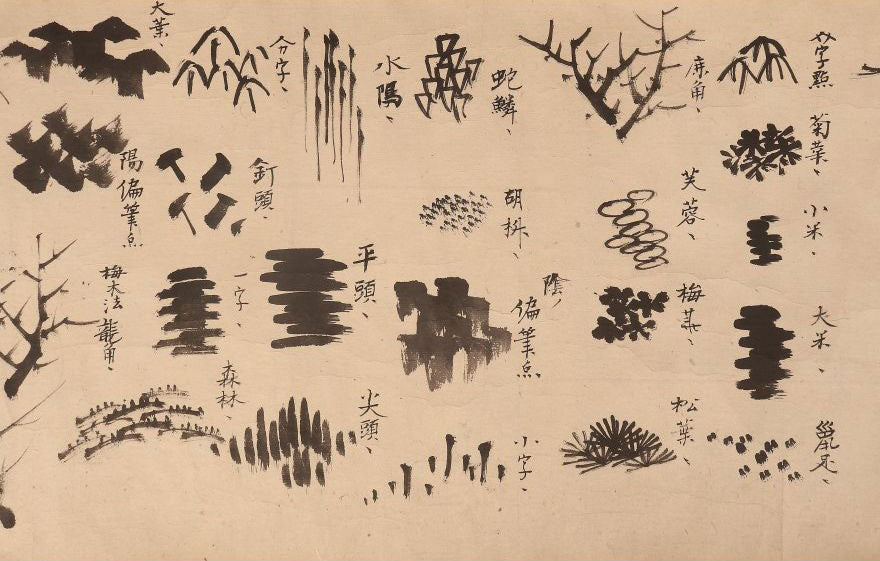 字點
菊葉、
小米、
大米、
鹿角、
芙蓉、
松葉、
蛇鱗、
胡椒、
陰ノ
偏筆点、
小字、
平頭、
尖頭、
分字、
釘頭、
一字、
森林
大葉、
陽偏筆点
梅木法龍角、